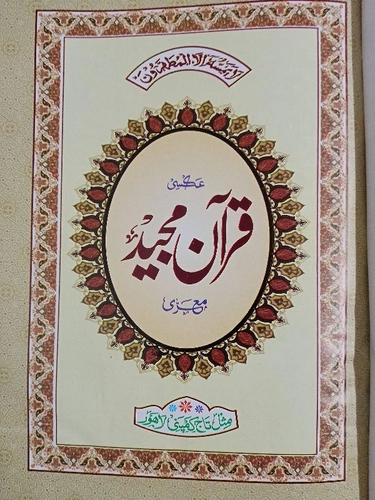 لا يمسه الا المطهرون
عکسی
قرآن مجید
معرّٰی
مثل تاج کمپنی لاہور